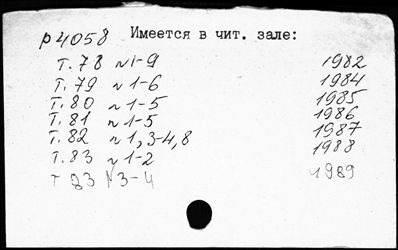 р4058 Имеется в чит. зале:
Т. 78 №1-9 1982
Т. 79 №1-6 1984
Т. 80 №1-5 1985
Т. 81 №1-5 1986
Т. 82 №1,3-4,8 1987
Т. 83 №1-2 1988
Т 83 №3-4 1989